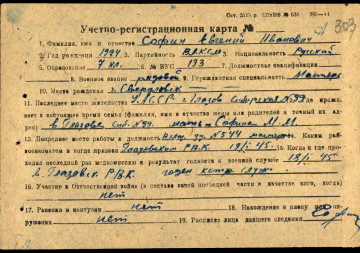 Учетно-регистрационная карта №
303
1. Фамилия, имя и отчество Софин Евгений Иванович
2. Год рождения 1924 3. Партийность ВЛКСМ 3. Национальность Русский
5. Образование 7 кл. 6. № ВУС 133 7. Должностная квалификация
8. Военное звание рядовой 9. Гражданская специальность
10. Место рождения г. Свердловск
11. Последнее место жительства УАССР г. Глазов
живает в настоящее время семья (фамилия, имя и отчество жены или родителей и точный их ад-
рес) в Глазове мать Софина М. М.
13. Последнее место работы и должность 14. Каким рай-
военкоматом и когда призван Глазовским РВК 19/I-45 15. Когда и где про-
ходил последний раз медкомиссию и результат годности к военной службе 19/I-45
в Глазовск. РВК годен
16. Участие в Отечественной войне (в составе какой последней части, в качестве кого, когда)
нет
17. Ранения и контузии нет 18. Нахождение в плену или ок-
ружении нет 19. Расписка лица давшего сведения